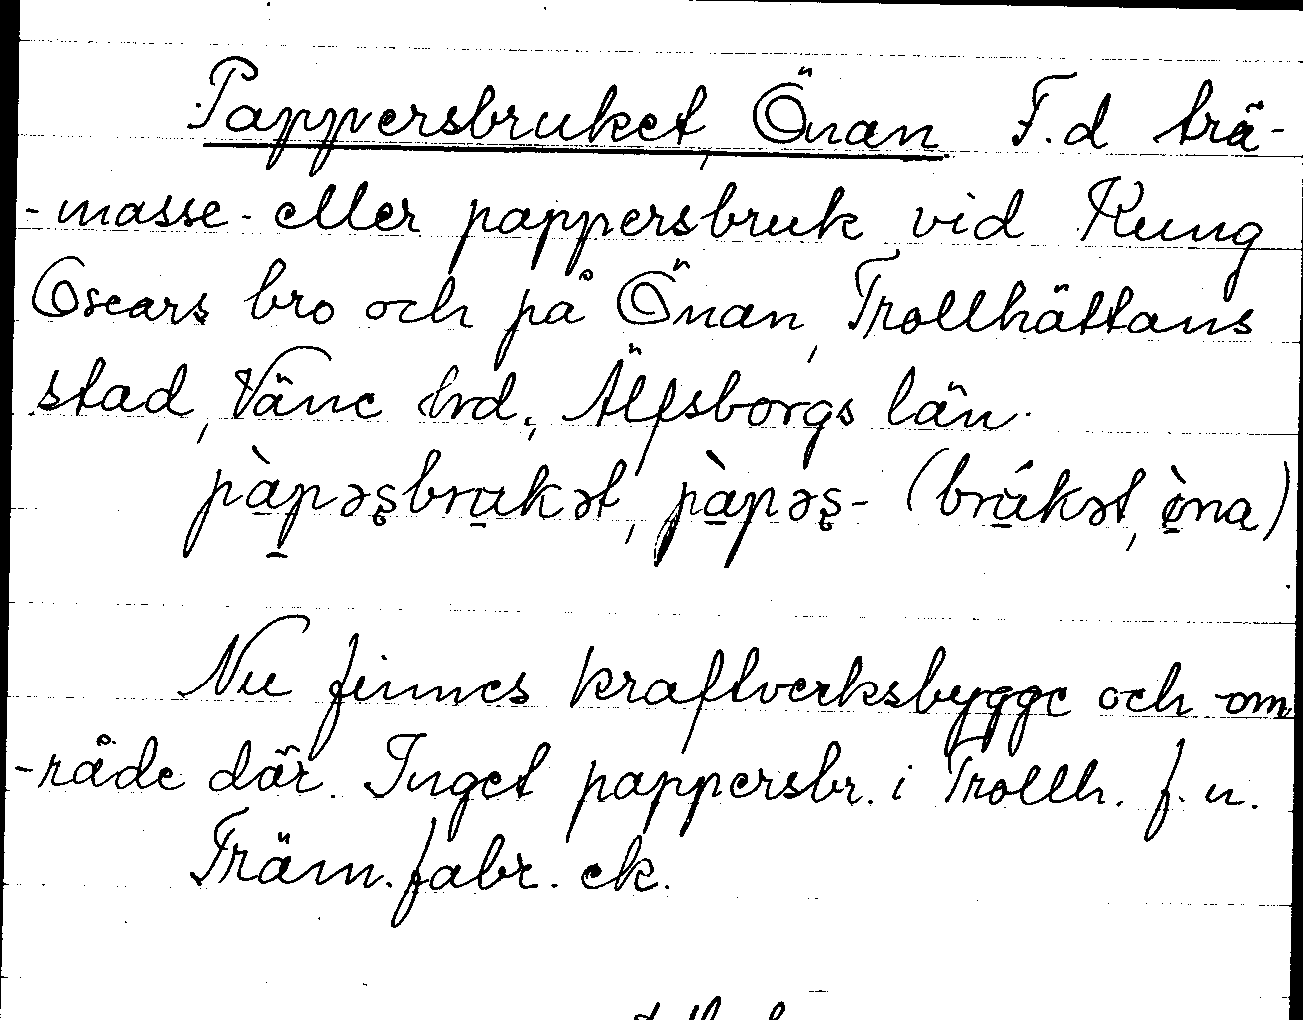 Pappersbruket, Önan F.d trä-
-masse- eller pappersbruk vid Kung
Oscars bro och på Önan, Trollhättans
stad, Väne hrd., Älfsborgs län.
pàpəşbrukət, pàpəş- (brúkət, ò̤na)
Nu finnes kraftverksbygge och -om
-råde där. Inget pappersbr. i Trollh. f. n.
Träm.fabr. ek.